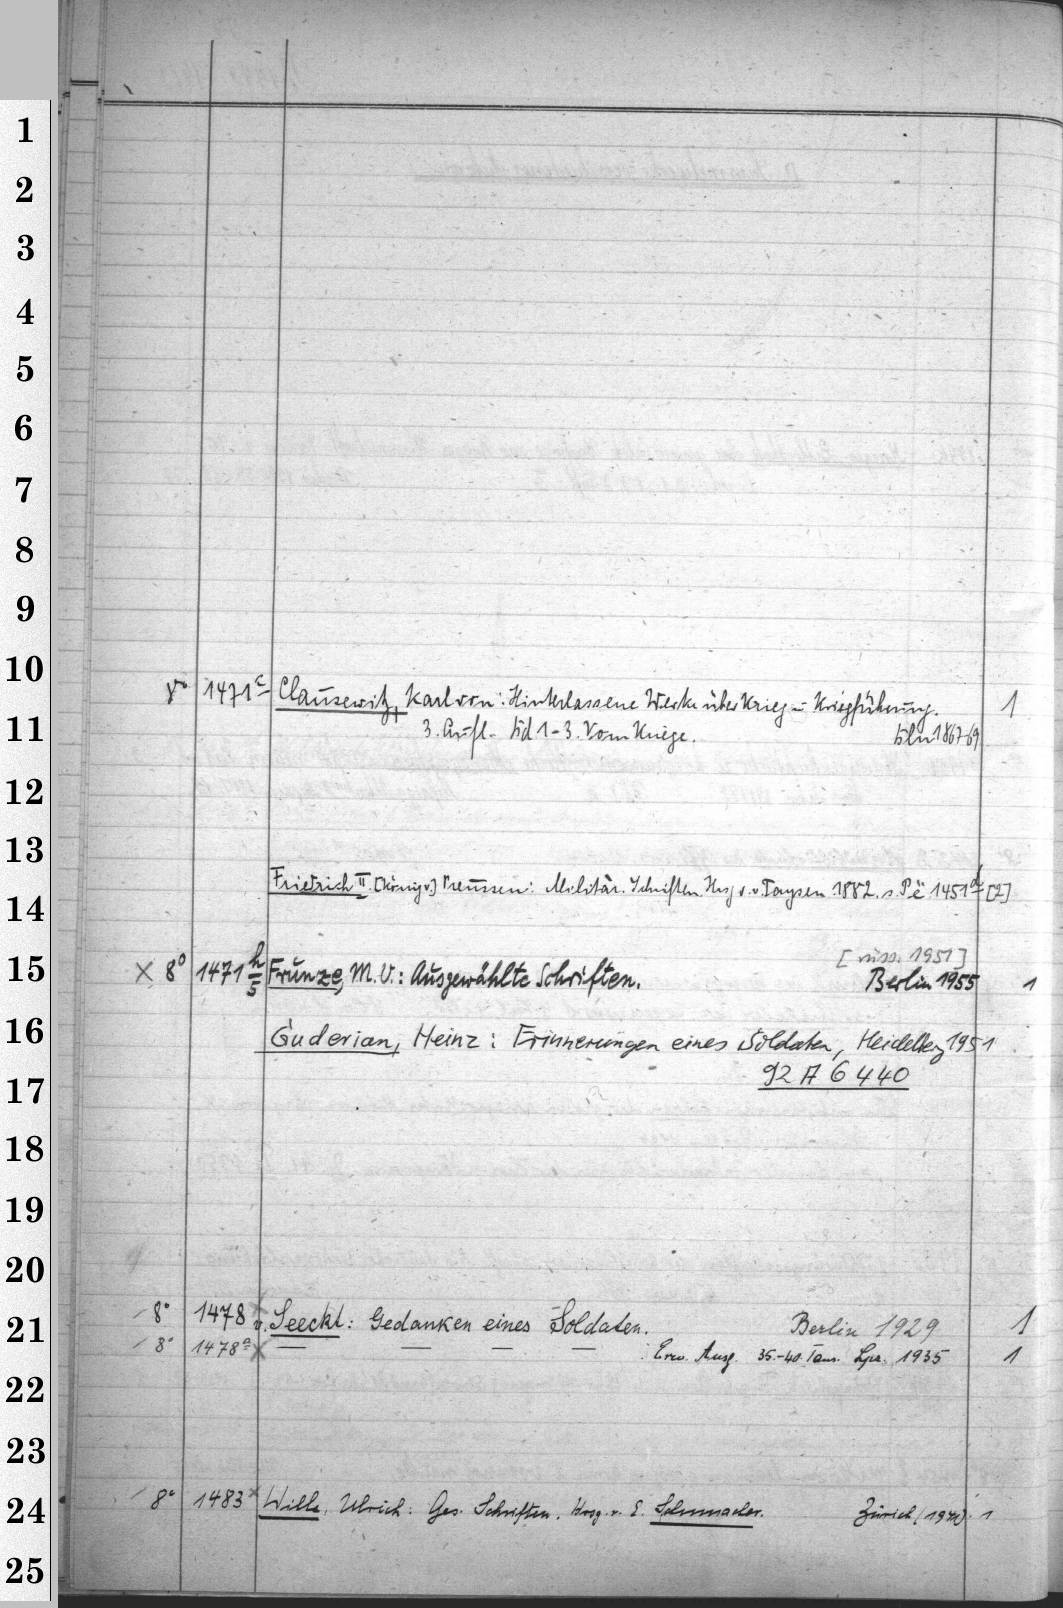 1
2
3
4
5
6
7
8
9
10
8° 1471c Clausewitz, Karl von: Hinterlassene Werke über Krieg u. Kriegführung. 1
11
3. Aufl. Bd 1-3. Vom Kriege. Bln 1867-69
12
13
Friedrich II. [König v.] Preussen: Militär. Schriften. Hrsg. v. v. Taysen 1882. s. 1451 [2]
14
[russ. 1951]
15
× 8° 1471 h/5 Frunze, M.V.: Ausgewählte Schriften. Berlin 1955 1
16
Guderian, Heinz: Erinnerungen eines Soldaten, Heidelberg 1951
92 A 6440
17
18
19
20
8° 1478 × v. Seeckt: Gedanken eines Soldaten. Berlin 1929 1
21
8° 1478a × — — — — Erw. Ausg. 35.-40. Taus. Lpz. 1935 1
22
23
8° 1483 × Wille, Ulrich: Ges. Schriften. Hrsg. v. E. Schumacher. Zürich (1941). 1
24
25